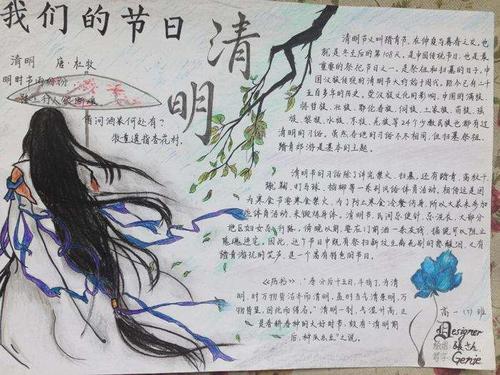 我们的节日
清明
清明 唐·杜牧
明时节雨纷纷
路上行人欲断魂
借问酒家何处有？
牧童遥指杏花村。
清明节又叫踏青节，在仲春与暮春之交，也
就是冬至后的第108天。是中国传统节日，也是最
重要的祭祀节日之一，是祭祖和扫墓的日子。中
国汉族传统的清明节大约始于周代，距今已有二千
五百多年的历史。受汉族文化的影响，中国的满族、
赫哲族、壮族、鄂伦春族、侗族、土家族、苗族、瑶
族、黎族、水族、京族、羌族等24个少数民族也都有过
清明的习俗。虽然各地习俗不尽相同，但扫墓祭祖、
踏青郊游是基本的主题。
清明节的习俗除了讲究禁火、扫墓，还有踏青、荡秋千、
蹴鞠、打马球、插柳等一系列风俗体育活动。相传这是因
为寒食节要寒食禁火，为了防止寒食冷餐伤身，所以大家来参加
些体育活动，来锻炼身体。清明节，
《历书》："春分后十五日，斗指丁，为清
明，时万物皆洁齐而清明，盖时当气清景明，万
物皆显，因此而得名。"清明一到，气温升高，正
是春耕春种的大好时节，故有"清明前
后，种瓜点豆"之说。
高一(7)班
Designer
Genie